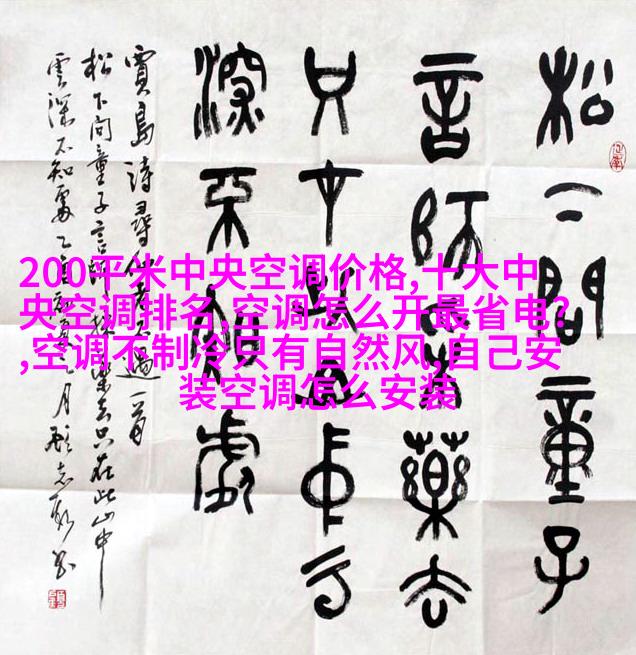 松下問童子
言師采藥去
只在此山中云
深不知處
賈島詩尋隱者不遇一首
松下問童子言師採藥去只在此山中
雲深不知處乙酉
200平米中央空调价格,十大中
央空调排名,空调怎么开最省电?
,空调不制冷只有自然风,自己安
装空调怎么安装